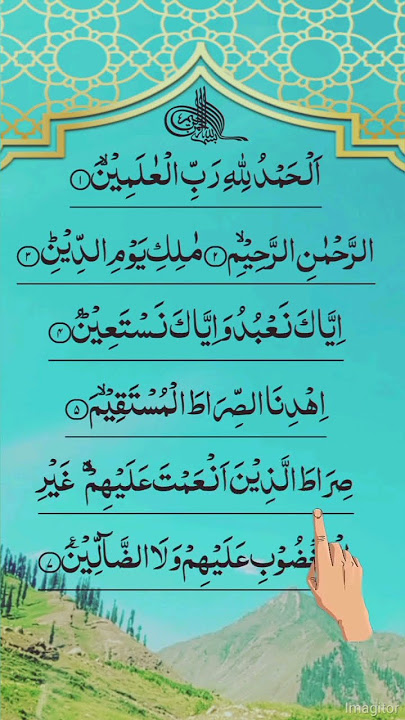 اَلْحَمْدُ لِلّٰهِ رَبِّ الْعٰلَمِيْنَۙ ۱
الرَّحْمٰنِ الرَّحِيْمِۙ ۲ مٰلِكِ يَوْمِ الدِّيْنِؕ ۳
اِيَّاكَ نَعْبُدُ وَاِيَّاكَ نَسْتَعِيْنُؕ ۴
اِهْدِنَا الصِّرَاطَ الْمُسْتَقِيْمَۙ ۵
صِرَاطَ الَّذِيْنَ اَنْعَمْتَ عَلَيْهِمْ ۙ۬ غَيْرِ
عَلَيْهِمْ وَلَا الضَّآلِّيْنَ ۷
Imagitor